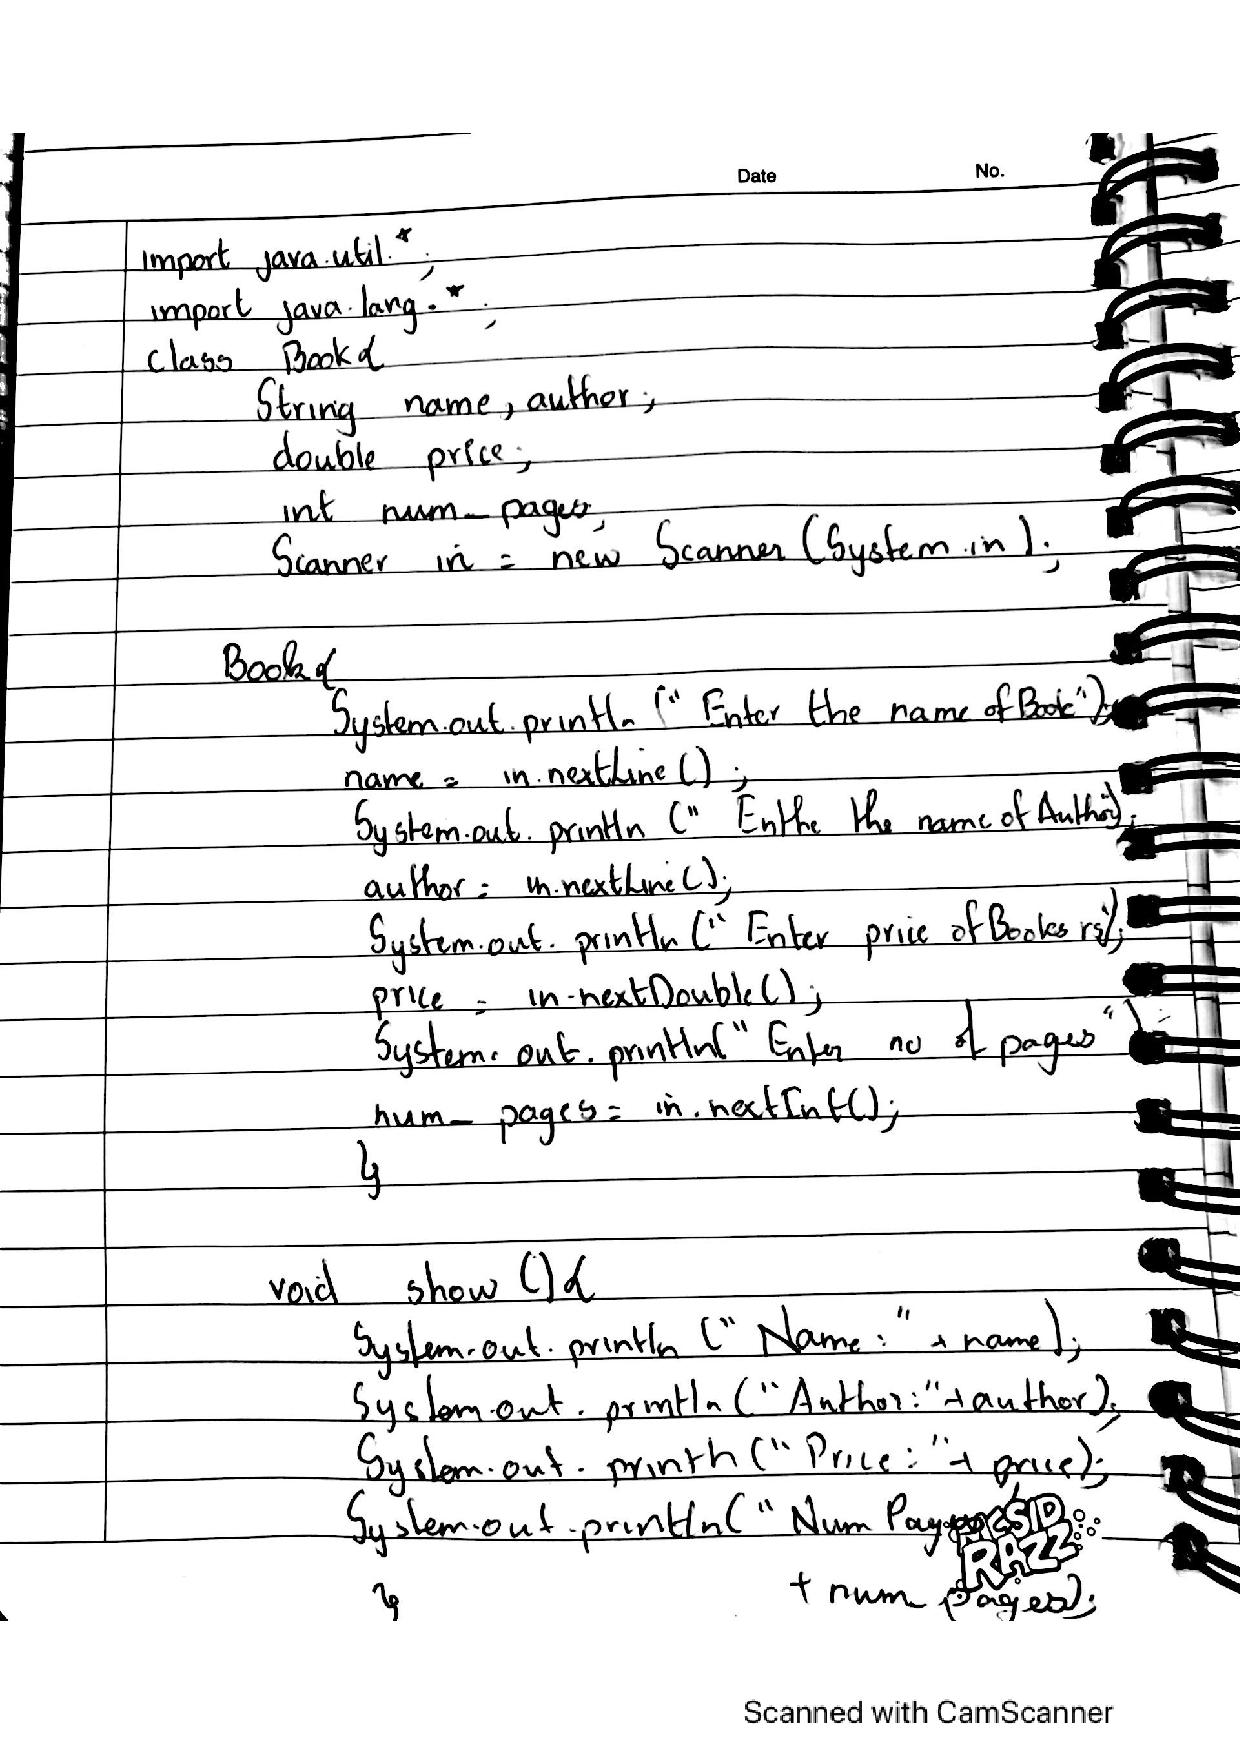 Date No.
import java.util.*;
import java.lang.*;
class Book{
String name, author;
double price;
int num_pages;
Scanner in = new Scanner (System.in);
Book{
System.out.println (" Enter the name of Book");
name = in.nextLine();
System.out.println (" Enthe the name of Author);
author = in.nextLine();
System.out.println (" Enter price of Books rs");
price = in.nextDouble();
System.out.println(" Enter no of pages");
num_pages = in.nextInt();
}
void show (){
System.out.println (" Name:" + name);
System.out.println ("Author:"+author);
System.out.println (" Price:"+ price);
System.out.println(" Num
SID
RAZZ
} + num_pages);
Scanned with CamScanner